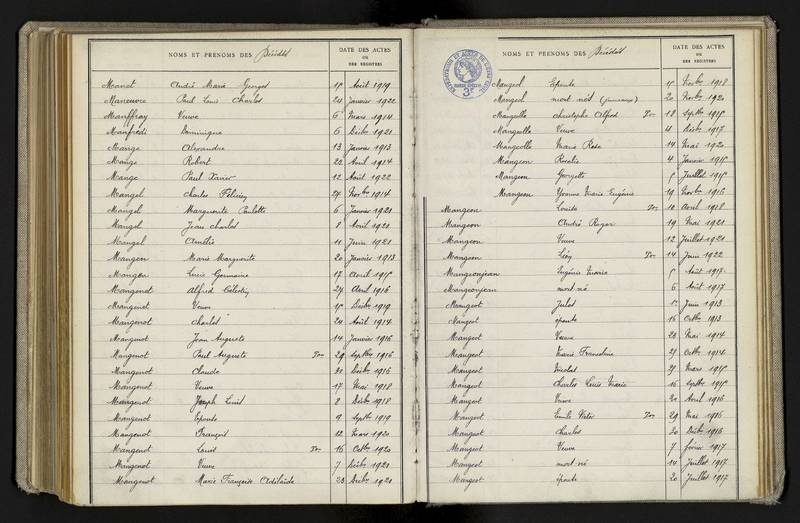 NOMS ET PRENOMS DES Décédés
DATE DES ACTES
OU
DES REGISTRES
Manat André Marie Georges 15 Août 1919
Manceuvre Paul Louis Charles 24 Janvier 1922
Manffray Veuve 6 Mars 1914
Manfrédi Dominique 6 Décbre 1921
Mange Alexandre 13 Janvier 1913
Mange Robert 22 Avril 1914
Mange Paul Xavier 12 Août 1922
Mangel Charles Félicien 24 Novbre 1914
Mangel Marguerite Paulette 6 Janvier 1921
Mangel Jean Charles 8 Avril 1921
Mangel Amélie 11 Juin 1921
Mangen Marie Marguerite 20 Janvier 1913
Mangen Lucie Germaine 17 Avril 1915
Mangenot Alfred Célestin 29 Avril 1916
Mangenot Veuve 15 Décbre 1919
Mangenot Charles 24 Août 1914
Mangenot Jean Auguste 14 Janvier 1916
Mangenot Paul Auguste Ton 29 Septbre 1916
Mangenot Claude 21 Décbre 1916
Mangenot Veuve 17 Mai 1918
Mangenot Joseph Louis 8 Décbre 1918
Mangenot Epouse 9 Septbre 1919
Mangenot François 12 Mars 1920
Mangenot Louis Ton 16 Octbre 1920
Mangenot Veuve 7 Décbre 1921
Mangenot Marie Françoise Adélaïde 23 Décbre 1921
NOMS ET PRENOMS DES Décédés
DATE DES ACTES
OU
DES REGISTRES
Mangeol Epouse 15 Novbre 1918
Mangeol mort né (jumeaux) 20 Novbre 1920
Mangeolle Christophe Alfred Ton 18 Septbre 1915
Mangeolle Veuve 4 Décbre 1917
Mangeolle Marie Rose 14 Mai 1920
Mangeon Rosalie 4 Janvier 1915
Mangeon Georgette 5 Juillet 1915
Mangeon Yvonne Marie Eugénie 19 Novbre 1916
Mangeon Louise Ton 10 Avril 1918
Mangeon André Roger 19 Mai 1921
Mangeon Veuve 12 Juillet 1921
Mangeon Léon Ton 14 Juin 1922
Mangeonjean Eugénie Maria 5 Août 1917
Mangeonjean mort-né 6 Août 1917
Mangeot Jules 1er Juin 1913
Mangeot épouse 16 Octbre 1913
Mangeot Veuve 23 Mai 1914
Mangeot Marie Françoise 27 Octbre 1914
Mangeot Nicolas 29 Mars 1915
Mangeot Charles Louis Marie 16 Septbre 1915
Mangeot Veuve 20 Avril 1916
Mangeot Emile Victor Ton 29 Mai 1916
Mangeot Charles 20 Décbre 1916
Mangeot Veuve 7 février 1917
Mangeot mort-né 14 Juillet 1917
Mangeot épouse 20 Juillet 1917